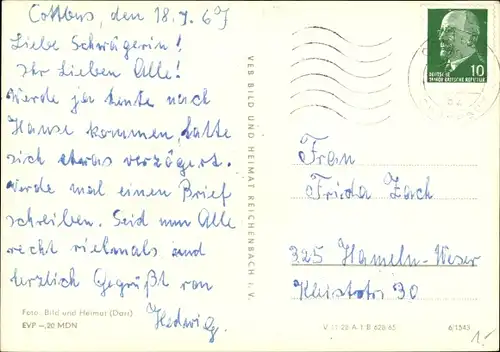 Cottbus, den 18.7.67
Liebe Schwägerin!
Ihr Lieben Alle!
Werde ja heute nach
Hause kommen, hatte
sich etwas verzögert.
Werde mal einen Brief
schreiben. Seid nun Alle
recht vielmals und
herzlich Gegrüßt von
Hedwig.
Foto: Bild und Heimat (Darr)
EVP –,20 MDN
VEB BILD UND HEIMAT REICHENBACH i. V.
10
DEUTSCHE DEMOKRATISCHE REPUBLIK
Frau
Frida Zach
325 Hameln-Weser
Kleiststr 30
V 11 28 A 1 B 628/65
6/1543
1.-